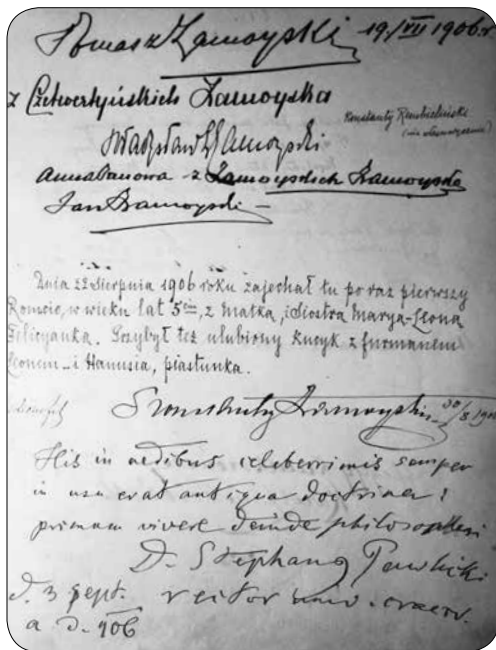 Tomasz Zamoyski 19/VII 1906 r.
z Czetwertyńskich Zamoyska
Konstanty Rembieliński
Władysław Zamoyski
Anna Janowa z Zamoyskich Zamoyska
Jan Zamoyski
Dnia 22 Sierpnia 1906 roku zajechał tu po raz pierwszy
Romcio, w wieku lat 5ciu, z Matką, i Siostrą Marya-Leoną
Felicyanką. Przybył też ulubiony Kucyk z furmanem
Leonem i Hanusia, piastunka.
Konstanty Zamoyski 30/8 1906
His in aedibus celeberrimis semper
in usu erat antiqua doctrina:
primum vivere deinde philosophari
D. Stephanus Pawlicki
d. 3 sept. rector univ. cracov.
a D. 906